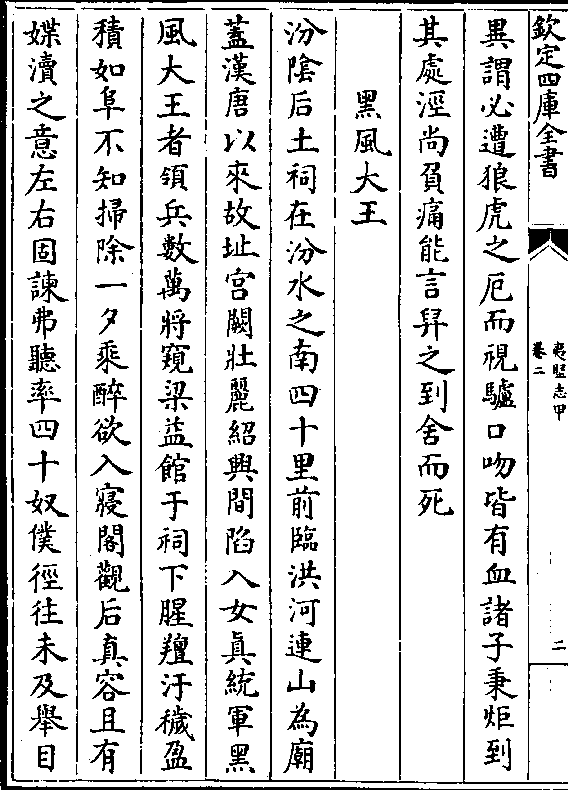 欽定四庫全書
夷堅志甲
卷二
二
異謂必遭狼虎之厄而視驢口吻皆有血諸子秉炬到
其處涇尚負痛能言舁之到舍而死
黑風大王
汾隂后土祠在汾水之南四十里前臨洪河連山為廟
蓋漢唐以來故址宫闕壯麗紹興間陷入女真統軍黑
風大王者領兵數萬將窺梁益館于祠下腥羶汙穢盈
積如阜不知掃除一夕乘醉欲入寢閣觀后真容且有
媟瀆之意左右固諫弗聽率四十奴僕徑往未及舉目